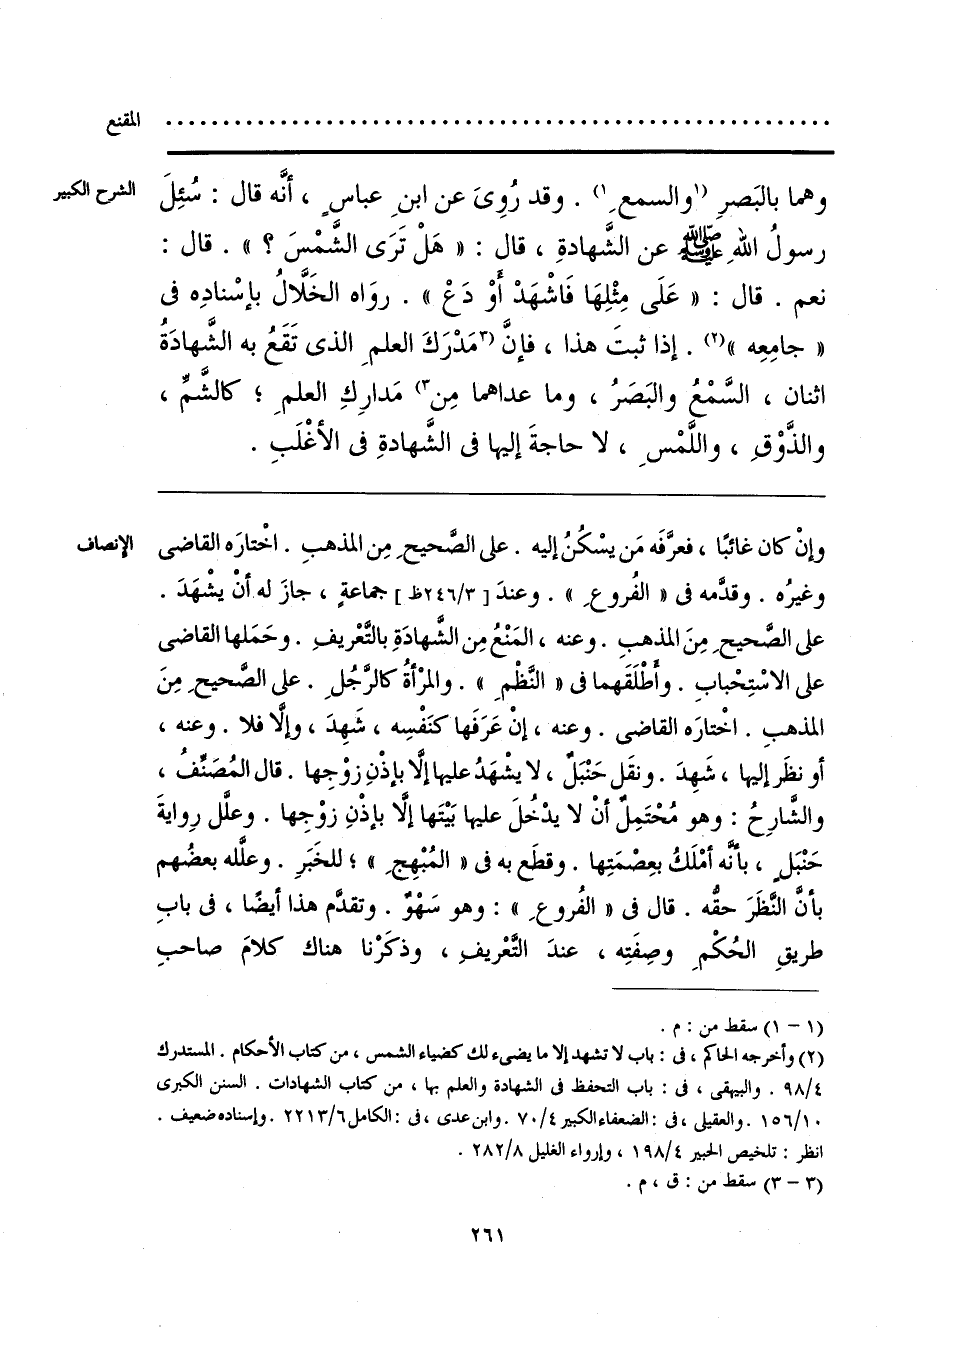 المقنع . . . . . . . . . . . . . . . . . . . . . . . . . . . . . . . . . . . . . . . . . . . . . . . . . . . . . . . . . .
الشرح الكبير
وهما بالبَصرِ (١والسمعِ١) . وقد رُوِىَ عن ابنِ عباسٍ ، أنَّه قال : سُئِلَ
رسولُ اللهِ ﷺ عن الشَّهادةِ ، قال : « هَلْ تَرَى الشَّمْسَ ؟ » . قال :
نعم . قال : « عَلَى مِثْلِهَا فَاشْهَدْ أَوْ دَعْ » . روَاه الخَلَّالُ بإسْنادِه فى
« جامِعِه »(٢) . إذا ثبتَ هذا ، فإنَّ (٣مَدْرَكَ العلمِ الذى تَقَعُ به الشَّهادَةُ
اثنان ، السَّمْعُ والبَصَرُ ، وما عداهما مِن٣) مَدارِكِ العلمِ ؛ كالشَّمِّ ،
والذَّوْقِ ، واللَّمْسِ ، لا حاجةَ إليها فى الشَّهادةِ فى الأغْلَبِ .
الإنصاف
وإنْ كان غائبًا ، فعرَّفَه مَن يسْكُنُ إليه . على الصَّحيحِ مِن المذهبِ . اخْتارَه القاضى
وغيرُه . وقدَّمه فى « الفُروعِ » . وعندَ [ ٢٤٦/٣ظ ] جماعةٍ ، جازَ له أنْ يشْهَدَ .
على الصَّحيحِ مِنَ المذهبِ . وعنه ، المَنْعُ مِن الشَّهادَةِ بالتَّعْريفِ . وحَمَلها القاضى
على الاسْتِحْبابِ . وأَطْلَقَهما فى « النَّظْمِ » . والمرْأةُ كالرَّجُلِ . على الصَّحيحِ مِنَ
المذهبِ . اخْتارَه القاضى . وعنه ، إنْ عَرَفَها كنَفْسِه ، شَهِدَ ، وإلَّا فلا . وعنه ،
أو نظَر إليها ، شَهِدَ . ونقَل حَنْبَلٌ ، لا يشْهَدُ عليها إلَّا بإذْنِ زوْجِها . قال المُصَنِّفُ ،
والشَّارِحُ : وهو مُحْتَمِلٌ أنْ لا يدْخُلَ عليها بَيْتَها إلَّا بإذْنِ زوْجِها . وعلَّل رِوايةَ
حَنْبَلٍ ، بأنَّه أمْلَكُ بعِصْمَتِها . وقطَع به فى « المُبْهِجِ » ؛ للخَبَرِ . وعلَّله بعضُهم
بأنَّ النَّظَرَ حقُّه . قال فى « الفُروعِ » : وهو سَهْوٌ . وتقدَّم هذا أيضًا ، فى بابِ
طريقِ الحُكْمِ وصِفَتِه ، عندَ التَّعْريفِ ، وذكَرْنا هناك كلامَ صاحبِ
(١ – ١) سقط من : م .
(٢) وأخرجه الحاكم ، فى : باب لا تشهد إلا ما يضىء لك كضياء الشمس ، من كتاب الأحكام . المستدرك
٩٨/٤ . والبيهقى ، فى : باب التحفظ فى الشهادة والعلم بها ، من كتاب الشهادات . السنن الكبرى
١٥٦/١٠ . والعقيلى ، فى : الضعفاء الكبير ٧٠/٤ . وابن عدى ، فى : الكامل ٢٢١٣/٦ . وإسناده ضعيف .
انظر : تلخيص الحبير ١٩٨/٤ ، وإرواء الغليل ٢٨٢/٨ .
(٣ – ٣) سقط من : ق ، م .
٢٦١